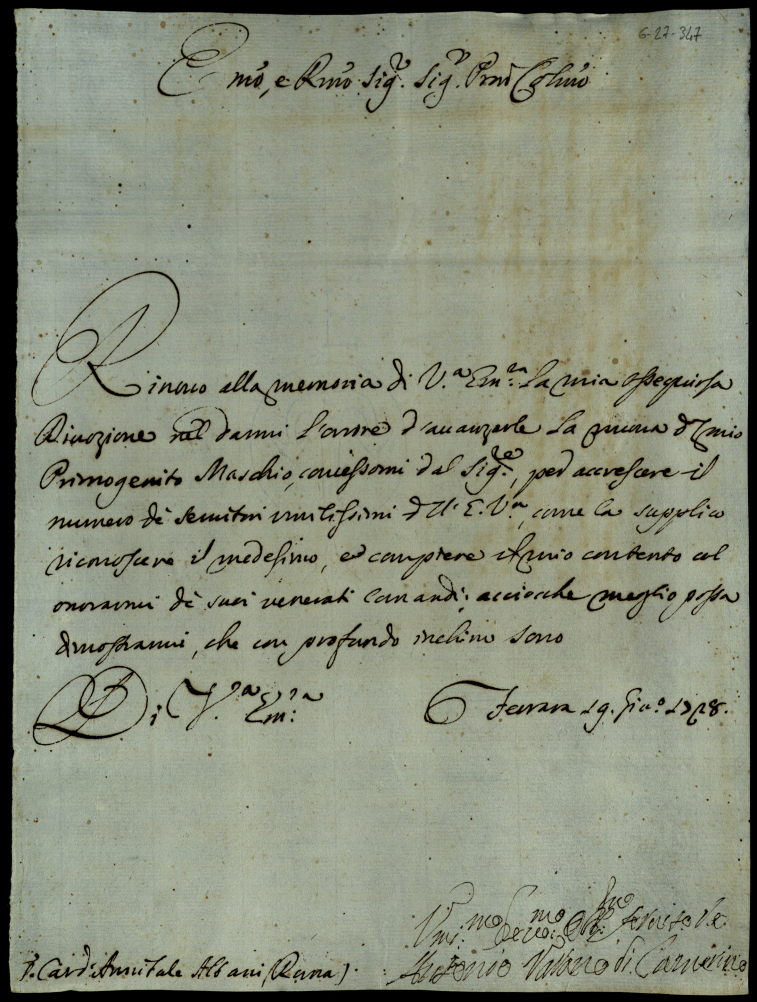 6-27-347
Emo, e Rmo Sigr. Sigr. Prne Colmo
Rinovo alla memoria di V.a Em.za la mia ossequiosa
Divozione nel darmi l'onore d'avanzarle la nuova del mio
Primogenito Maschio, concessomi dal Sigre, per accrescere il
numero de servitori umilissimi dell'E.V.ra, come la supplico
riconoscere il medesimo, e compiere il mio contento col
onorarmi de suoi venerati comandi; acciocche meglio possa
dimostrarmi, che con profondo inchino sono
Di V.ra Em.za
Ferrara 19. Giu.o 1728.
Umi.mo Devo.mo Obb.mo Servitore
Antonio di Camerino
S. Card: Annibale Albani (Roma).